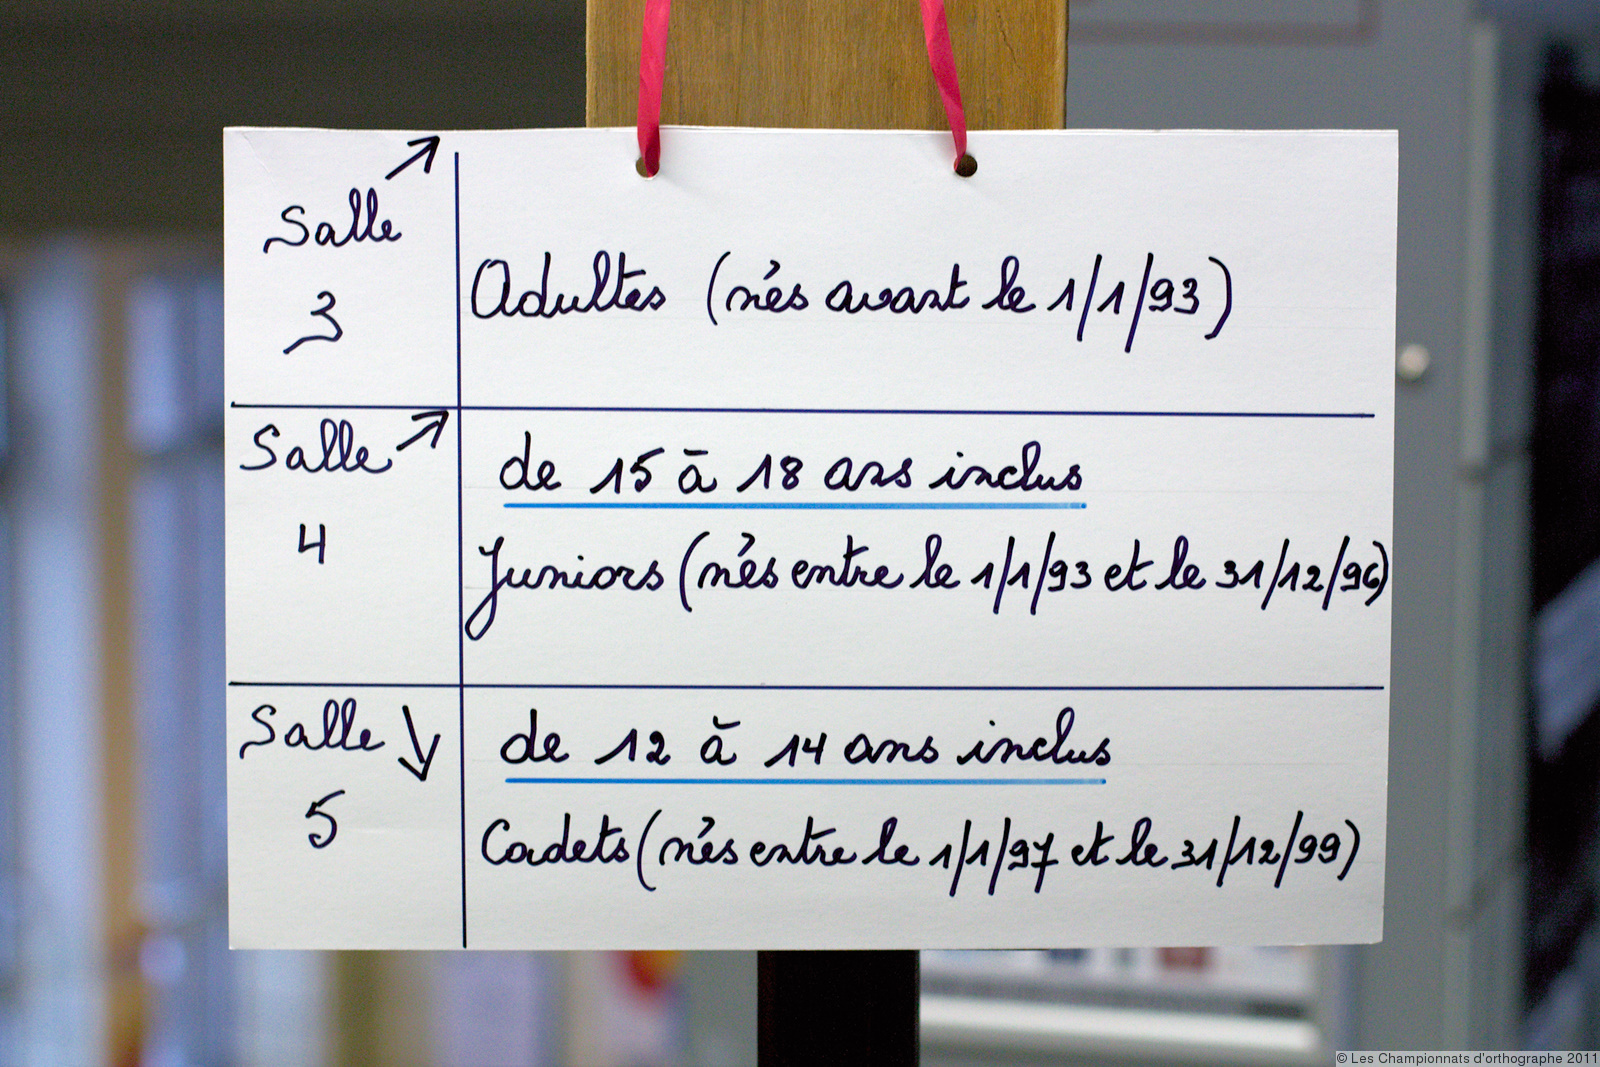 Salle ↗
3
Adultes (nés avant le 1/1/93)
Salle ↗
4
de 15 à 18 ans inclus
Juniors (nés entre le 1/1/93 et le 31/12/96)
Salle ↓
5
de 12 à 14 ans inclus
Cadets (nés entre le 1/1/97 et le 31/12/99)
© Les Championnats d'orthographe 2011